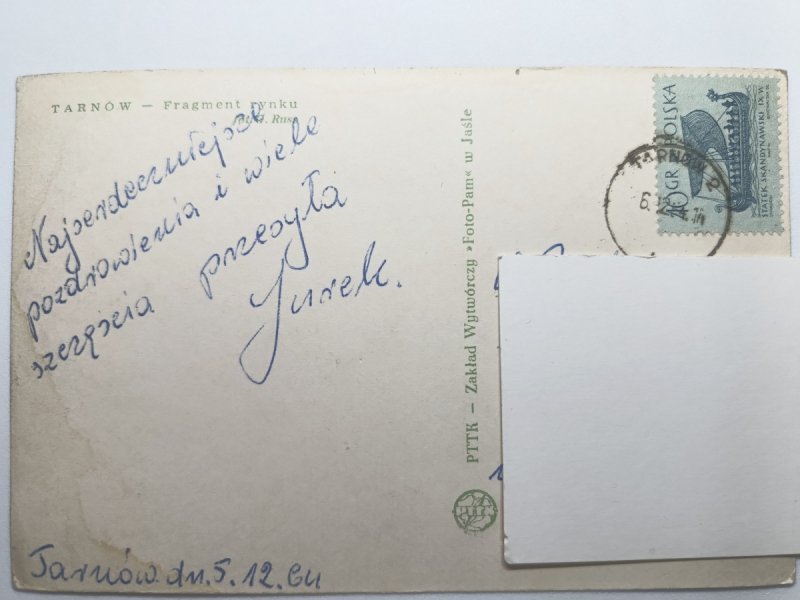 TARNÓW — Fragment rynku
fot. J. Rusa
Najserdeczniejsze
pozdrowienia i wiele
szczęścia przesyła
Jurek.
Tarnów dn. 5.12.64
PTTK — Zakład Wytwórczy »Foto-Pam« w Jaśle
40 GR POLSKA
STATEK SKANDYNAWSKI IX W.
TARNÓW 2